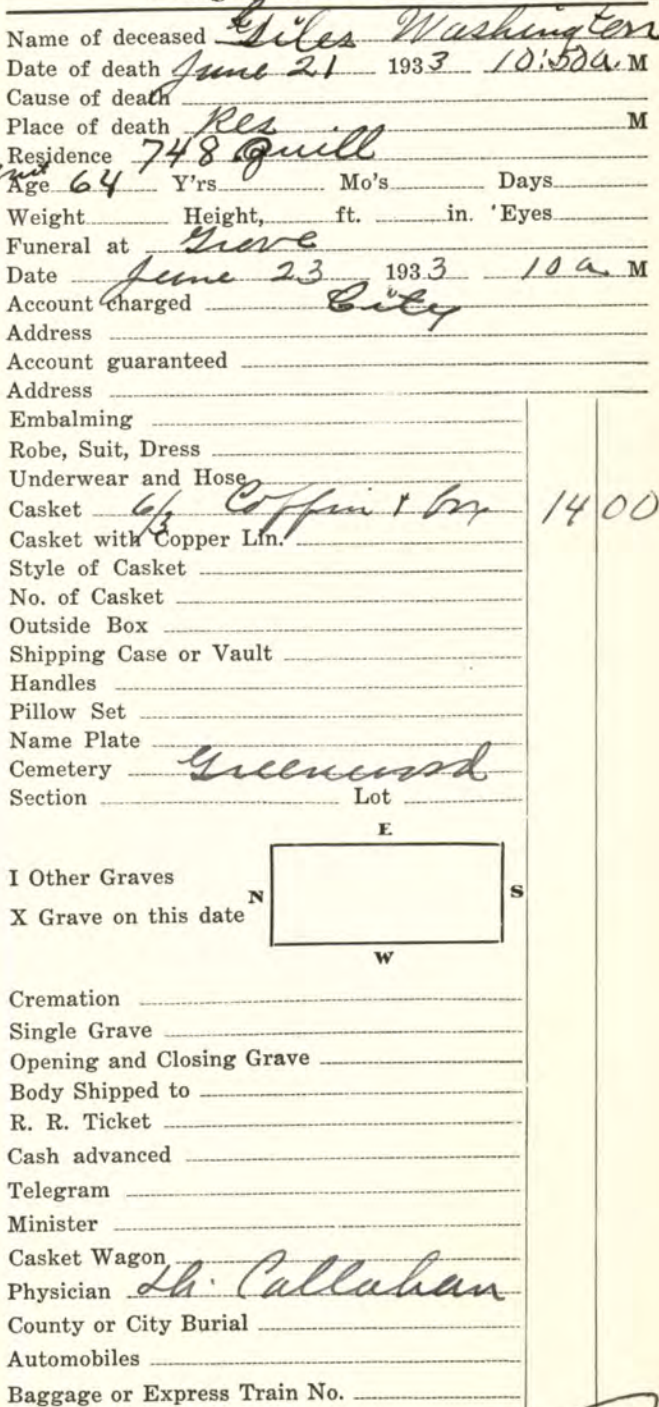 Name of deceased Giles Washington
Date of death June 21 1933 10:50 a. M
Cause of death
Place of death Res M
Residence 748 Quill
Age 64 Y'rs Mo's Days
Weight Height, ft. in. Eyes
Funeral at Grove
Date June 23 1933 10 a M
Account charged City
Address
Account guaranteed
Address
Embalming
Robe, Suit, Dress
Underwear and Hose
Casket 6/3 Coffin & box 14 00
Casket with Copper Lin.
Style of Casket
No. of Casket
Outside Box
Shipping Case or Vault
Handles
Pillow Set
Name Plate
Cemetery Greenwood
Section Lot
E
I Other Graves
N S
X Grave on this date
W
Cremation
Single Grave
Opening and Closing Grave
Body Shipped to
R. R. Ticket
Cash advanced
Telegram
Minister
Casket Wagon
Physician Dr. Callahan
County or City Burial
Automobiles
Baggage or Express Train No.